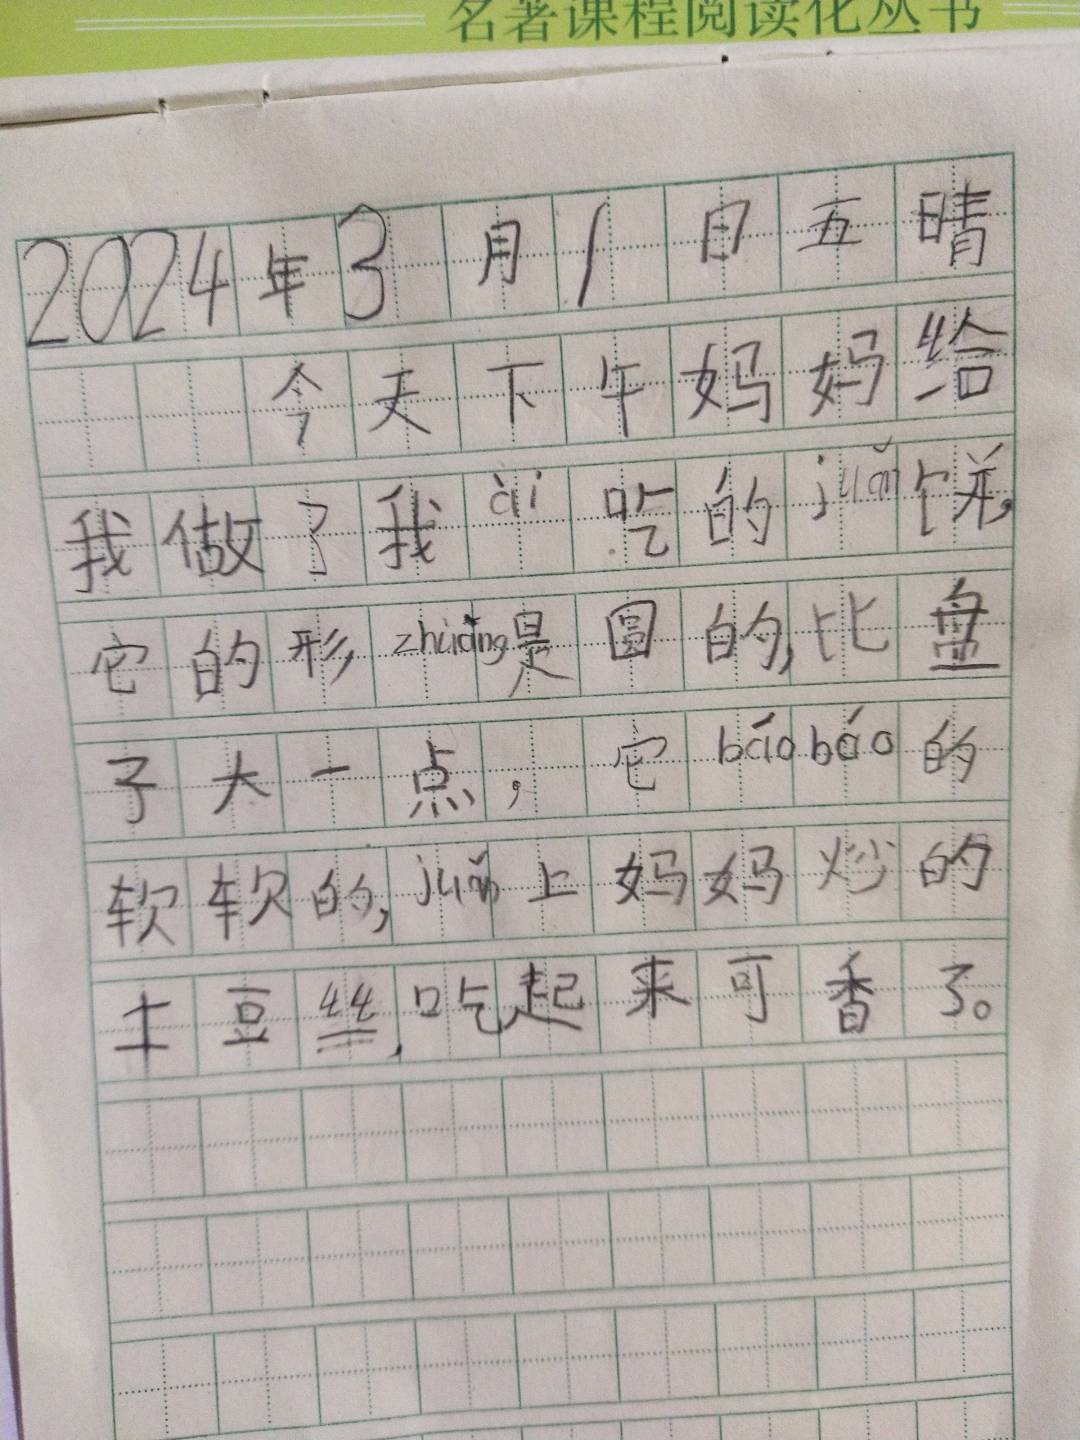 名著课程阅读化丛书
2024年3月1日五晴
今天下午妈妈给
我做了我ài吃的juǎn饼,
它的形zhuàng是圆的,比盘
子大一点,它báobáo的
软软的,juǎn上妈妈炒的
土豆丝,吃起来可香了。